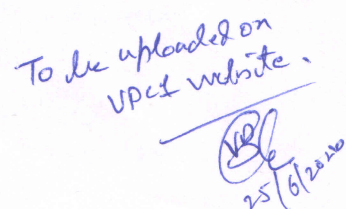 To be uploaded on
VPCI website.
25/6/2020